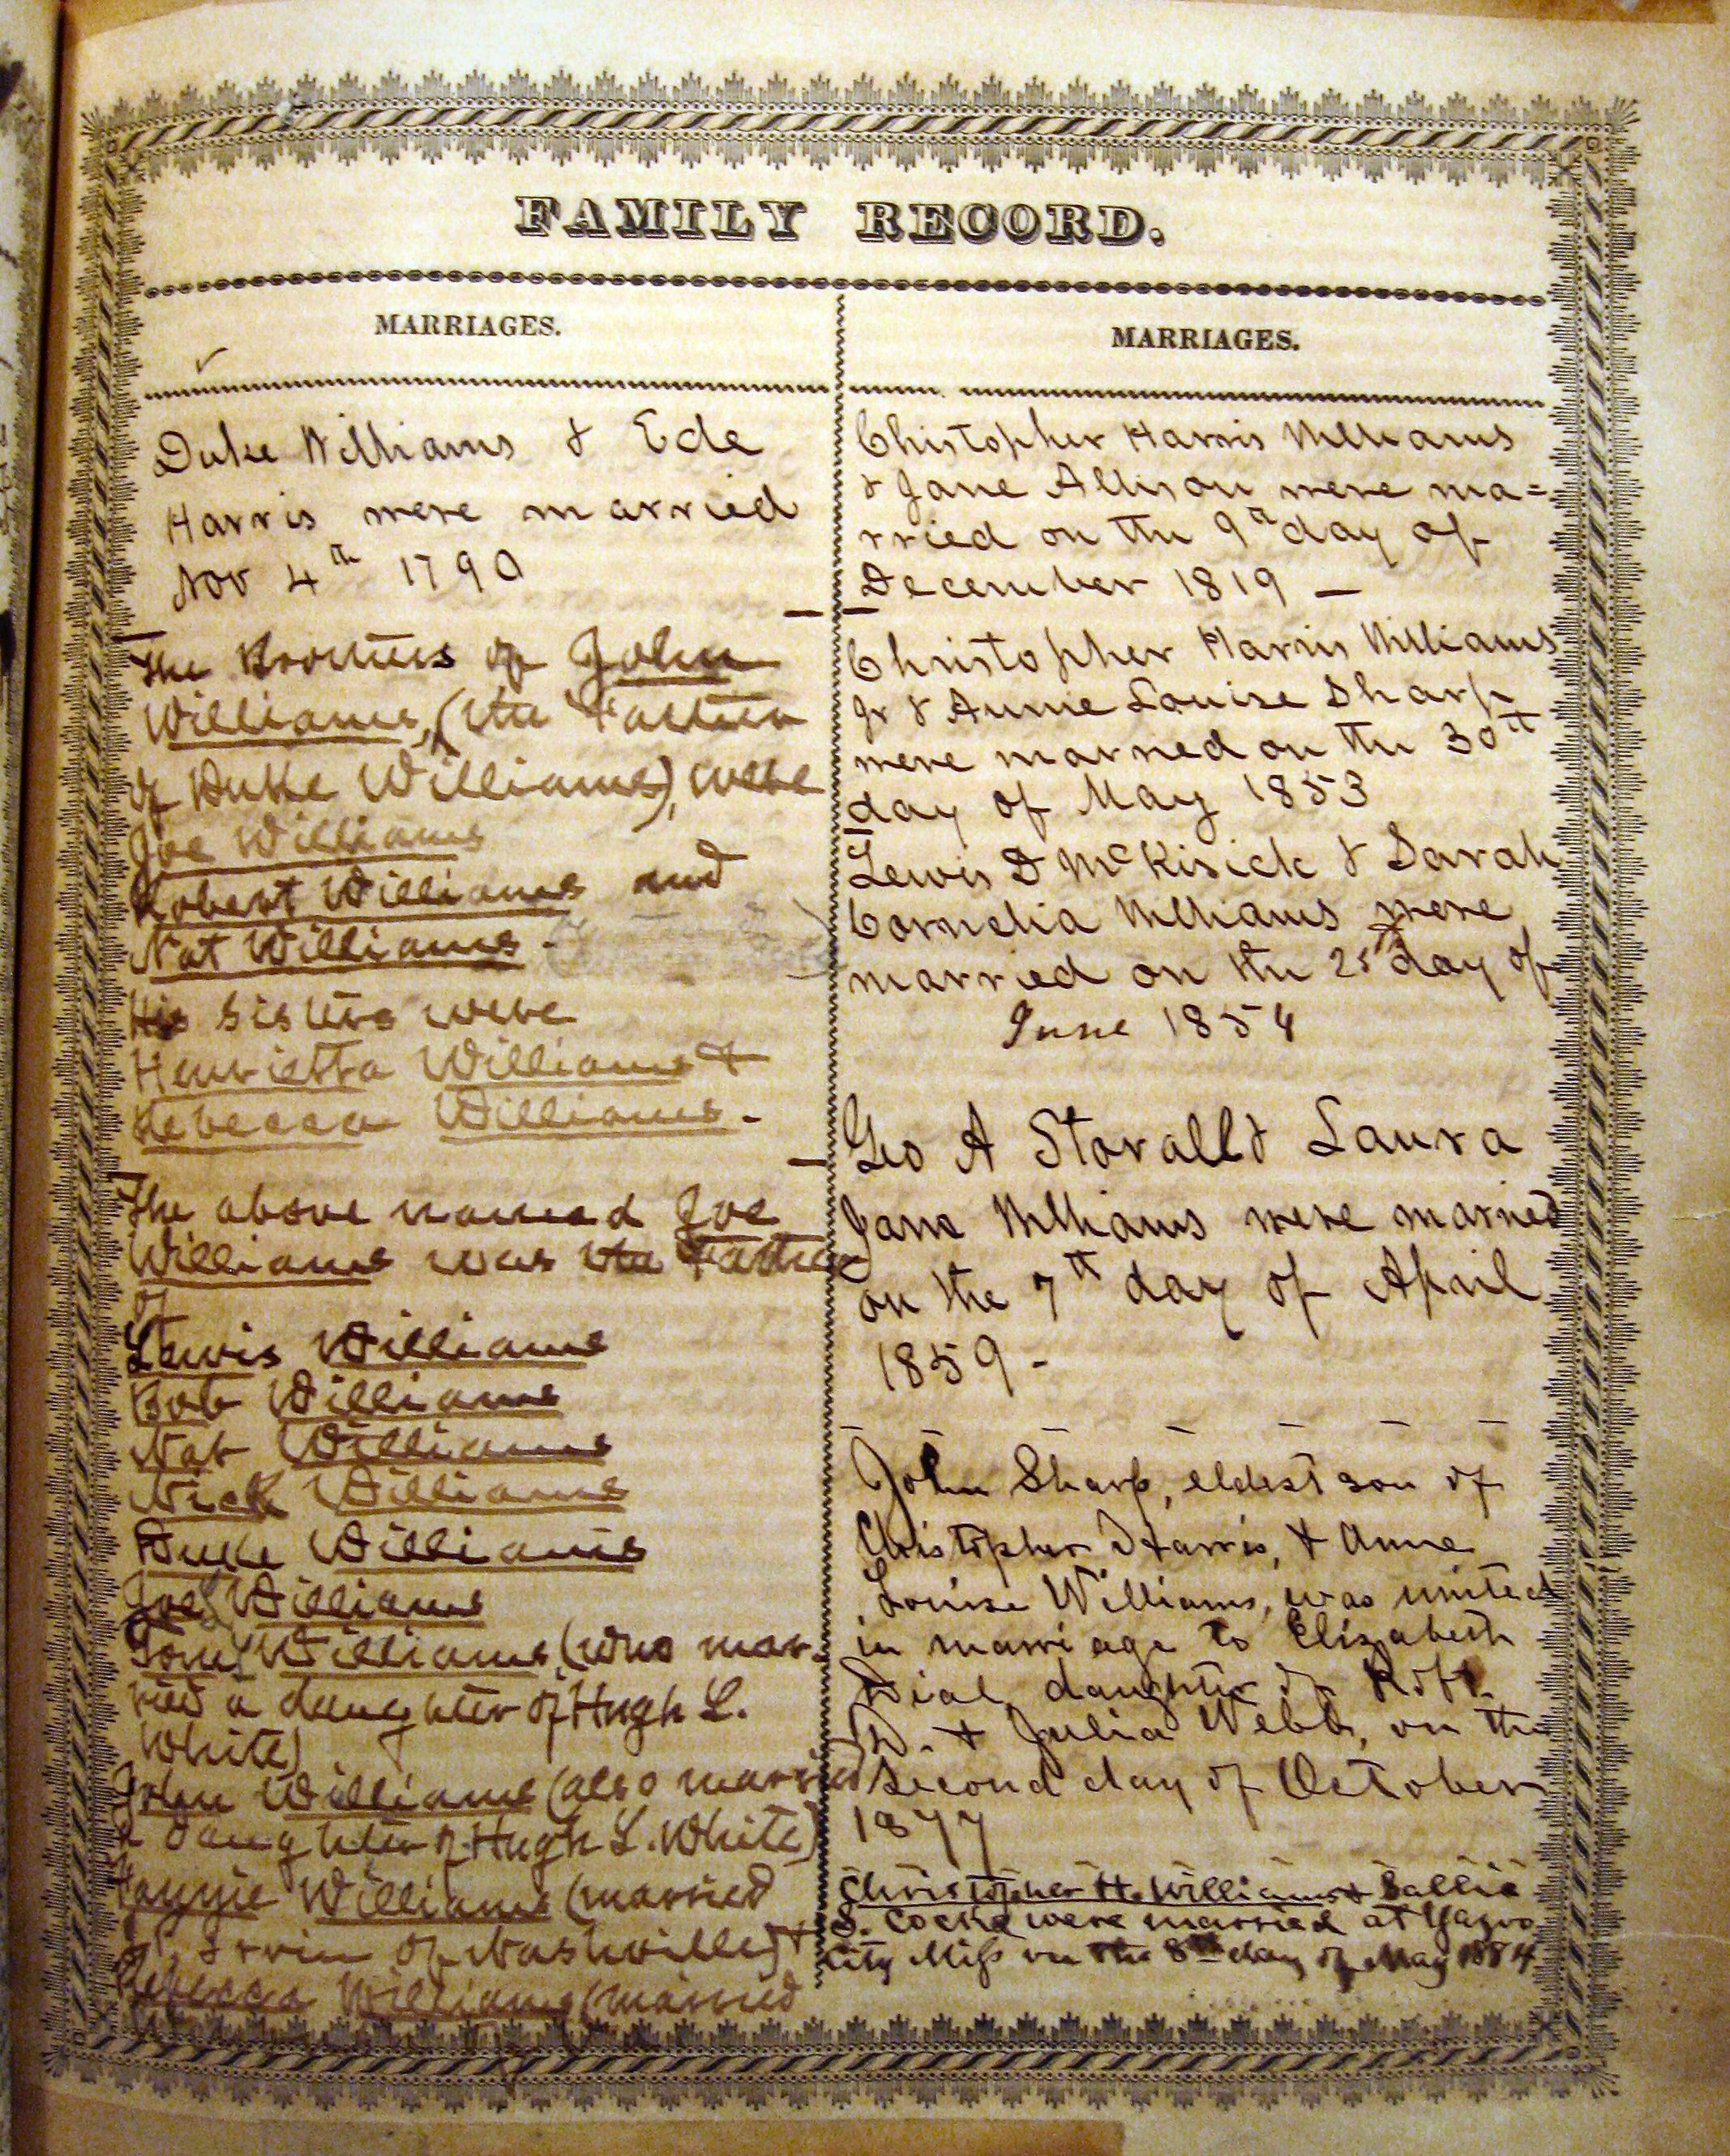 FAMILY RECORD.
MARRIAGES.
Duke Williams & Ede
Harris were married
Nov 4th 1790
The Brothers of John
Williams, (the Father
of Duke Williams), were
Joe Williams
Robert Williams and
Nat Williams.
His sisters were
Henrietta Williams &
Rebecca Williams.
The above named Joe
Williams was the Father
of
Lewis Williams
Bob Williams
Nat Williams
Nick Williams
Duke Williams
Joe Williams
Tom Williams (who mar-
ried a daughter of Hugh L.
White)
John Williams (also married
a daughter of Hugh L. White)
Williams (married
of Nashville) &
Rebecca Williams (married
MARRIAGES.
Chistopher Harris Williams
& Jane Allison were ma=
rried on the 9th day of
December 1819 —
Christopher Harris Williams
Jr & Annie Louise Sharp
were married on the 30th
day of May 1853
Lewis D McKisick & Sarah
Cornelia Williams were
married on the 25th day of
June 1854
Geo A Stovall & Laura
Jane Williams were married
on the 7th day of April
1859 -
John Sharp, eldest son of
Christopher Harris, & Anne
Louise Williams, was united
in marriage to Elizabeth
Dial, daughter of Robt.
D. & Julia Webb, on the
second day of October
1877
Christopher H. Williams & Sallie
S. Cocke were married at Yazoo
City Miss on the 8th day of May 1884